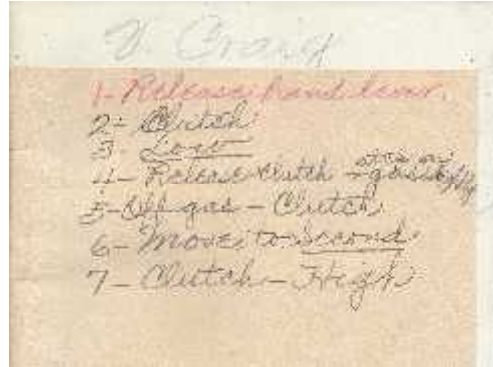 V. Craig
1- Release hand lever.
2- Clutch
3 Low
4- Release clutch - step on gas slightly
5- Off gas - Clutch
6- Move to Second
7- Clutch - High